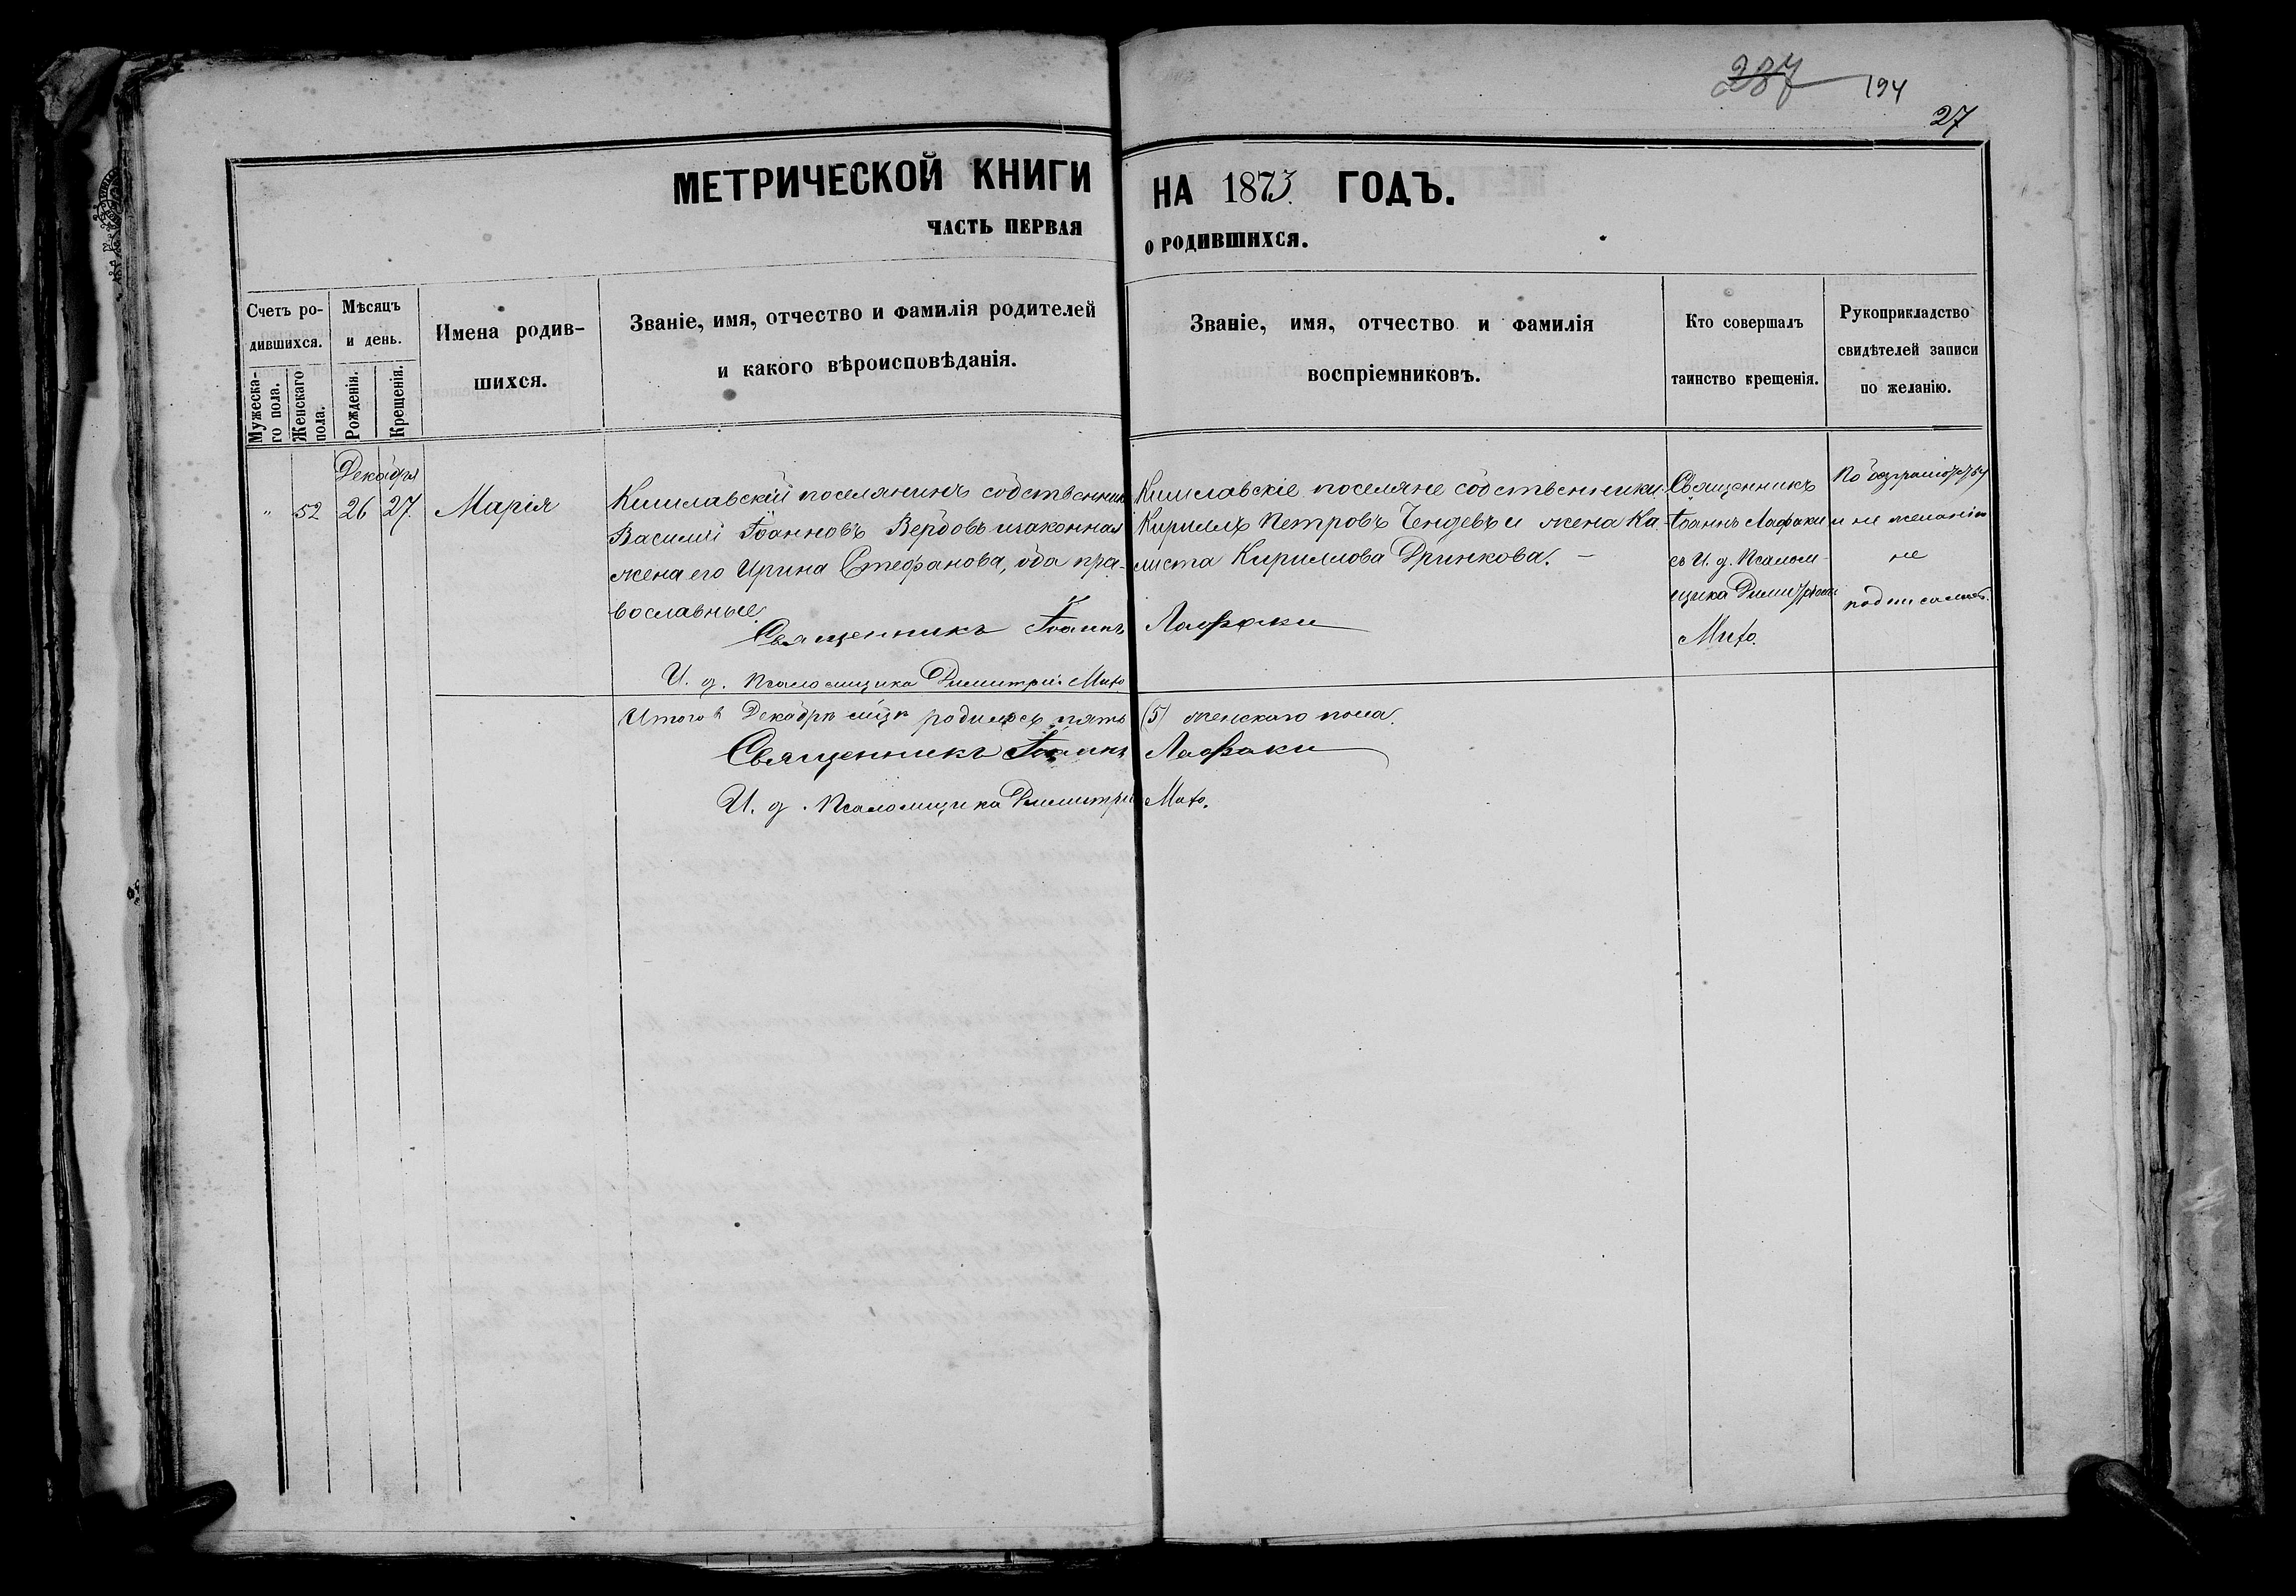 237 194
27
МЕТРИЧЕСКОЙ КНИГИ НА 1873 ГОДЪ.
ЧАСТЬ ПЕРВАЯ О РОДИВШИХСЯ.
Счетъ ро-
дившихся.
Мужеска-
го пола.
Женскаго
пола.
Мѣсяцъ
и день.
Рожденія.
Крещенія.
Имена родив-
шихся.
Званіе, имя, отчество и фамилія родителей
и какого вѣроисповѣданія.
Званіе, имя, отчество и фамилія
воспріемниковъ.
Кто совершалъ
таинство крещенія.
Рукоприкладство
свидѣтелей записи
по желанію.
Декабря
" 52 26 27. Марія
поселянинъ собственникъ
Василій Іоанновъ Вербовъ изаконная
жена его Ирина Стефанова, оба пра-
вославные.
поселяне собственники
Кириллъ Петровъ Чендевъ и жена Ка-
листа Кириллова Дринкова. —
Священникъ
Іоаннъ Лафаки
съ И. д. Псалом-
щика
и не желанію
не
Священникъ Іоаннъ Лафаки
И. д. Псаломщика Димитрій
Итого в Декабрѣ м̃цѣ родилось пять (5) женскаго пола.
Священникъ Іоаннъ Лафаки
И. д. Псаломщика Димитрій